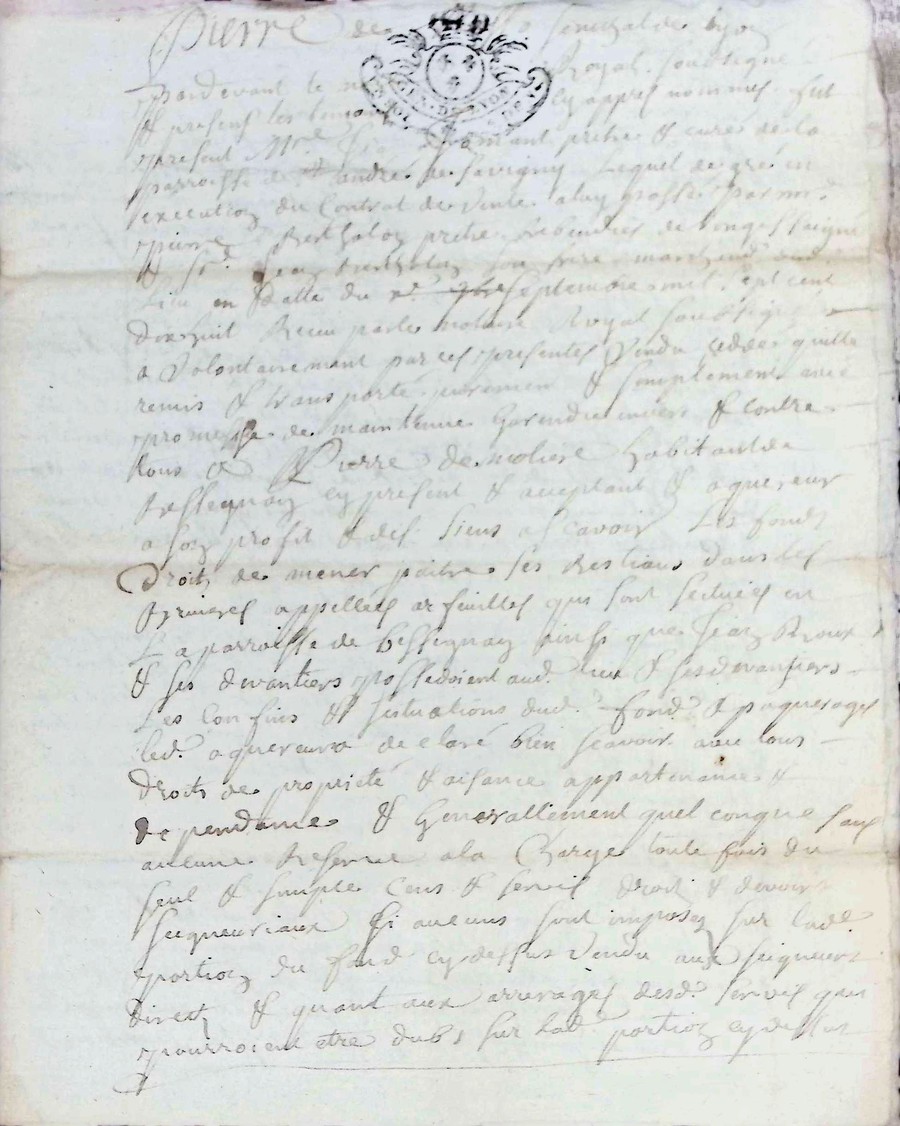 Pierre de senechal de Lyon
Pardevant le Royal soussigné
& presens les temoins cy appres nommes fut
present Mre prêtre & curé de la
parroisse de St andré de Savigny Lequel de gré en
execution du Contrat de Vente a luy passé par mr.
pierre Bertholon prêtre
& sr. Jean Bertholon son frère marchand dud.
Lieu en datte du septembre mil sept cent
dix huit Receu par le notaire Royal soussigné
a Volontairement par ces presentes Vendu cedde quitte
remis & transporté purement & simplement avec
promesse de maintenue Garendie envers & contre
tous a Pierre de moliere habitant de
Bessegnay cy present & acceptant & aquereur
a son profit & des siens a scavoir Les fonds
Droits de mener paitre ses Bestiaux dans les
Bruieres appellées arfeuilles qui sont scituées en
La parroisse de bessegnay ainsi que Jean Roux
& ses devantiers possedoient aud. lieu & ses devantiers
Les Confins & situations dud. fond & paquerages
led. aquereur a declaré bien scavoir avec tous
droits de proprieté & aisance appartenance &
dependance & Generallement quelconque sans
aucune Reserve a la Charge toute fois du
seul & simple Cens & servis droit & devoirs
seigneuriaux si aucuns sont imposez sur lade
portion du fond cy dessus Vendu aux seigneurs
directz & quant aux arrerages desd. servis qui
pourroient etre dubs sur lad portion cy dessus